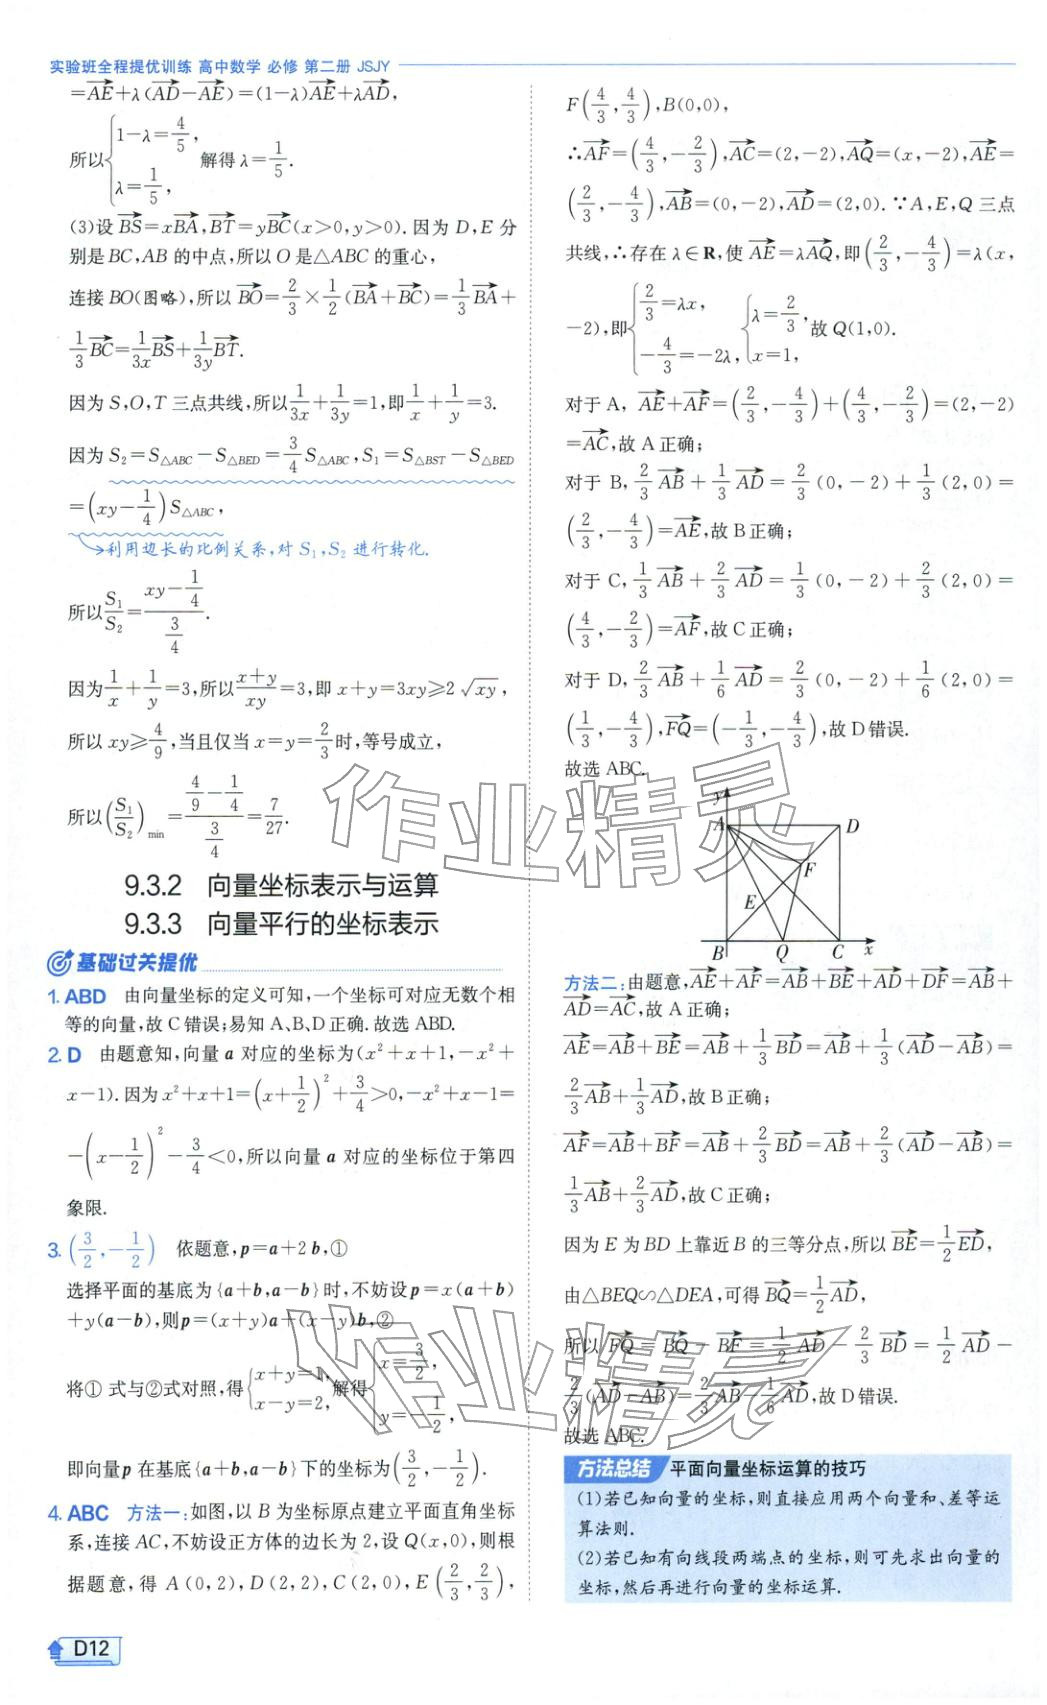 实验班全程提优训练 高中数学 必修 第二册 JSJY
=AE→+λ(AD→−AE→)=(1−λ)AE→+λAD→,
所以{1−λ=4/5, λ=1/5, 解得λ=1/5.
(3)设BS→=xBA→,BT→=yBC→(x>0,y>0).因为D,E分
别是BC,AB的中点,所以O是△ABC的重心,
连接BO(图略),所以BO→=2/3×1/2(BA→+BC→)=1/3BA→+
1/3BC→=1/(3x)BS→+1/(3y)BT→.
因为S,O,T三点共线,所以1/(3x)+1/(3y)=1,即1/x+1/y=3.
因为S₂=S△ABC−S△BED=3/4S△ABC,S₁=S△BST−S△BED
=(xy−1/4)S△ABC,
利用边长的比例关系,对S₁,S₂进行转化.
所以S₁/S₂=(xy−1/4)/(3/4).
因为1/x+1/y=3,所以(x+y)/(xy)=3,即x+y=3xy≥2√xy,
所以xy≥4/9,当且仅当x=y=2/3时,等号成立,
所以(S₁/S₂)min=(4/9−1/4)/(3/4)=7/27.
9.3.2 向量坐标表示与运算
9.3.3 向量平行的坐标表示
基础过关提优
1. ABD 由向量坐标的定义可知,一个坐标可对应无数个相
等的向量,故C错误;易知A、B、D正确.故选ABD.
2. D 由题意知,向量a对应的坐标为(x²+x+1,−x²+
x−1).因为x²+x+1=(x+1/2)²+3/4>0,−x²+x−1=
−(x−1/2)²−3/4<0,所以向量a对应的坐标位于第四
象限.
3. (3/2,−1/2) 依题意,p=a+2b,①
选择平面的基底为{a+b,a−b}时,不妨设p=x(a+b)
+y(a−b),则p=(x+y)a+(x−y)b,②
将①式与②式对照,得{x+y=1, x−y=2, 解得{x=3/2, y=−1/2,
即向量p在基底{a+b,a−b}下的坐标为(3/2,−1/2).
4. ABC 方法一:如图,以B为坐标原点建立平面直角坐标
系,连接AC,不妨设正方体的边长为2,设Q(x,0),则根
据题意,得A(0,2),D(2,2),C(2,0),E(2/3,2/3),
D12
F(4/3,4/3),B(0,0),
∴AF→=(4/3,−2/3),AC→=(2,−2),AQ→=(x,−2),AE→=
(2/3,−4/3),AB→=(0,−2),AD→=(2,0).∵A,E,Q三点
共线,∴存在λ∈R,使AE→=λAQ→,即(2/3,−4/3)=λ(x,
−2),即{2/3=λx, −4/3=−2λ, {λ=2/3, x=1, 故Q(1,0).
对于A,AE→+AF→=(2/3,−4/3)+(4/3,−2/3)=(2,−2)
=AC→,故A正确;
对于B,2/3AB→+1/3AD→=2/3(0,−2)+1/3(2,0)=
(2/3,−4/3)=AE→,故B正确;
对于C,1/3AB→+2/3AD→=1/3(0,−2)+2/3(2,0)=
(4/3,−2/3)=AF→,故C正确;
对于D,2/3AB→+1/6AD→=2/3(0,−2)+1/6(2,0)=
(1/3,−4/3),FQ→=(−1/3,−4/3),故D错误.
故选ABC.
y
A D
F
E
B Q C x
方法二:由题意,AE→+AF→=AB→+BE→+AD→+DF→=AB→+
AD→=AC→,故A正确;
AE→=AB→+BE→=AB→+1/3BD→=AB→+1/3(AD→−AB→)=
2/3AB→+1/3AD→,故B正确;
AF→=AB→+BF→=AB→+2/3BD→=AB→+2/3(AD→−AB→)=
1/3AB→+2/3AD→,故C正确;
因为E为BD上靠近B的三等分点,所以BE→=1/2ED→,
由△BEQ∽△DEA,可得BQ→=1/2AD→,
所以FQ→=BQ→−BF→=1/2AD→−2/3BD→=1/2AD→−
2/3(AD→−AB→)=2/3AB→−1/6AD→,故D错误.
故选ABC.
方法总结 平面向量坐标运算的技巧
(1)若已知向量的坐标,则直接应用两个向量和、差等运
算法则.
(2)若已知有向线段两端点的坐标,则可先求出向量的
坐标,然后再进行向量的坐标运算.
作业精灵
作业精灵